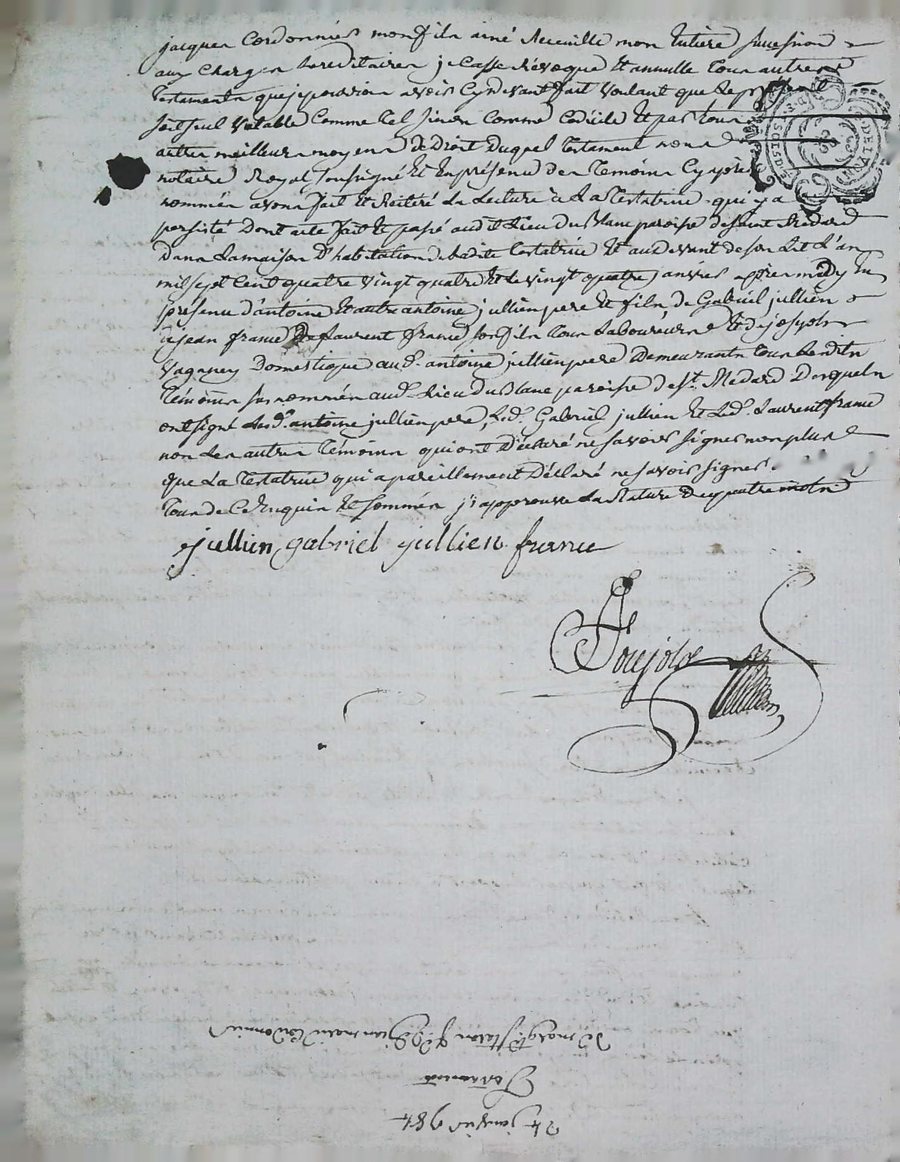 jacques Cordonnier mon fils ainé Recueille mon Entiere succession
aux charges hereditaires je Casse Revoque Et annulle tous autres
testaments que je pourrois avoir Cydevant fait voulant que le present
soit seul valable Comme tel sinon Comme Codicile Et par tout
autre meilleur moyen de droit duquel testament nous
notaire Royal soussigné Et En présence des temoins Cy après
nommés avons fait Et Reiteré La Lecture à La testatrice qui y a
persisté dont acte fait Et passé aud. Lieu du Blanc paroisse de saint Medard
dans La maison d'habitation de ladite testatrice Et au devant de son Lit L'an
mil sept Cent quatre vingt quatre Et Le vingt quatre janvier après midy En
présence d'antoine Et autre antoine jullien pere Et fils, de Gabriel jullien
de jean france de Laurent france son fils tous Laboureurs Et de joseph
Vaganey Domestique aud. antoine jullien pere Demeurants tous Lesdits
témoins sus nommés aud. Lieu du Blanc paroisse de st. Medard Desquels
ont signé Led. antoine jullien pere, Led. Gabriel jullien Et Led. Laurent france
non Les autres témoins qui ont Déclaré ne savoir signer non plus
que La testatrice qui a pareillement Déclaré ne savoir signer.
tous de Ce Enquis Et sommés j'approuve La Rature de quatre mots
jullien gabriel jullien france
24 janvier 1784
Testament